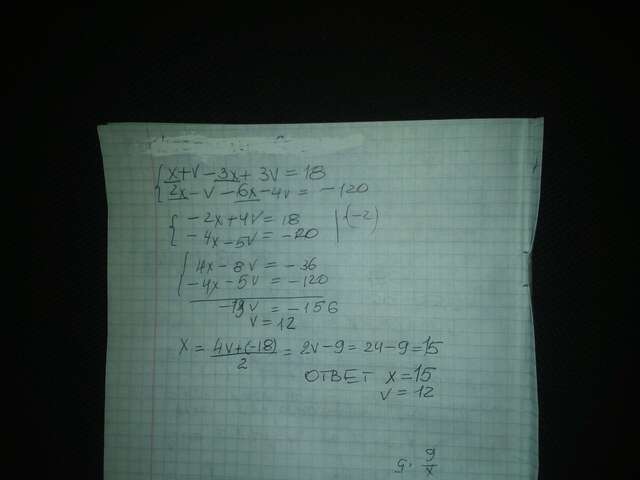 x+v-3x+3v=18
2x-v-6x-4v=-120
-2x+4v=18 |(-2)
-4x-5v=-20
4x-8v=-36
-4x-5v=-120
-13v=-156
v=12
x=4v+(-18)/2=2v-9=24-9=15
ОТВЕТ x=15
v=12
9/x